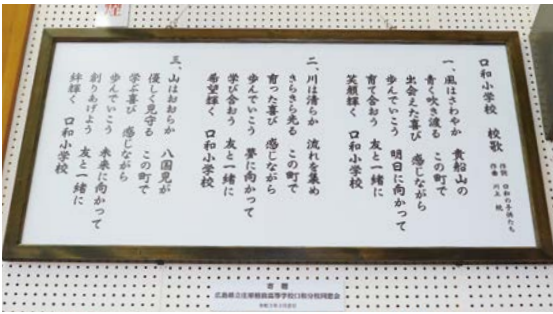 口和小学校　校歌
作詞　口和の子供たち
作曲　川上　統
一、風はさわやか　貴船山の
青く吹き渡る　この町で
出会えた喜び　感じながら
歩んでいこう　明日に向かって
育て合おう　友と一緒に
笑顔輝く　口和小学校
二、川は清らか　流れを集め
きらきら光る　この町で
育った喜び　感じながら
歩んでいこう　夢に向かって
学び合おう　友と一緒に
希望輝く　口和小学校
三、山はおおらか　八国見が
優しく見守る　この町で
学ぶ喜び　感じながら
歩んでいこう　未来に向かって
創りあげよう　友と一緒に
絆輝く　口和小学校
寄贈
広島県立庄原格致高等学校口和分校同窓会